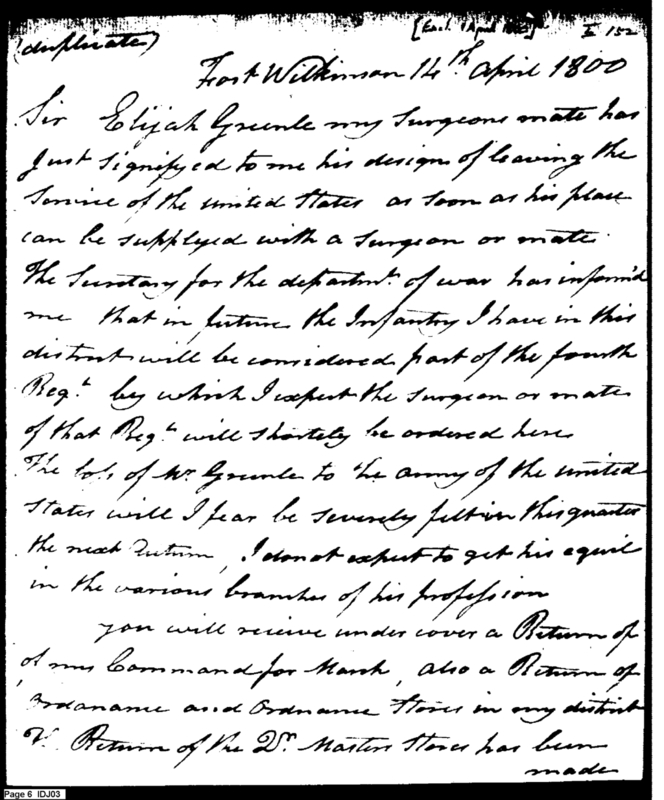 (duplicate) [Encl. 1 April 1800] I 152
Fort Wilkinson 14th. April 1800
Sir Elijah Greenle my Surgeons mate has
Just signifyed to me his design of leaving the
Service of the united States as soon as his place
can be supplyed with a Surgeon or mate
The Secretary for the departmt. of war has informd
me that in future the Infantry I have in this
district will be considered part of the fourth
Regt. by which I expect the surgeon or mate
of that Regt. will shortely be ordered here
The loss of Mr. Greenle to the army of the united
States will I fear be severely felt in this quarter
the next , I do not expect to get his equil
in the various branches of his profession
you will receive under cover a Return of
of my Command for March, also a Return of
Ordanance and Ordnance Stores in my district
Return of the Qr. Masters Stores has been
made
Page 6 IDJ03